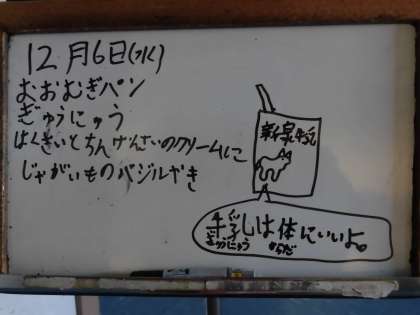 12月6日(水)
おおむぎパン
ぎゅうにゅう
はくさいとちんげんさいのクリームに
じゃがいものバジルやき
牛乳
牛乳は体にいいよ。
ぎゅうにゅう からだ